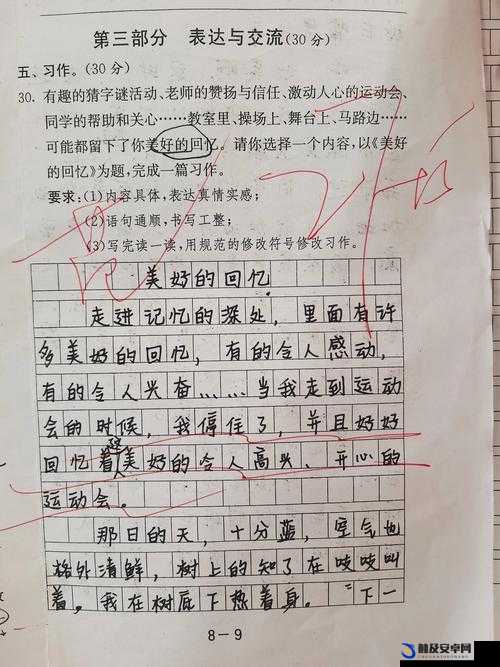 第三部分 表达与交流(30分)
五、习作。(30分)
30. 有趣的猜字谜活动、老师的赞扬与信任、激动人心的运动会、
同学的帮助和关心……教室里、操场上、舞台上、马路边……
可能都留下了你美好的回忆。请你选择一个内容，以《美好
的回忆》为题，完成一篇习作。
要求：(1)内容具体，表达真情实感；
(2)语句通顺，书写工整；
(3)写完读一读，用规范的修改符号修改习作。
美好的回忆
走进记忆的深处，里面有许
多美好的回忆，有的令人感动，
有的令人兴奋……当我走到运动
会的时候，我停住了，并且好好
回忆着美好的令人高兴、开心的
运动会。
那日的天，十分蓝，空气也
格外清鲜，树上的知了在吱吱叫
着。我在树底下热着身。“下一
8－9
触及安卓网